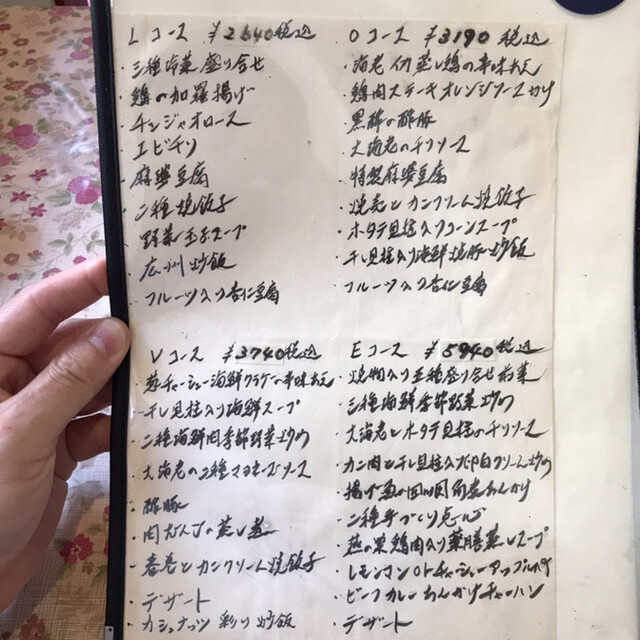 Lコース ¥2640税込
・三種冷菜盛り合せ
・鶏の加羅揚げ
・チンジャオロース
・エビチリ
・麻婆豆腐
・二種焼餃子
・野菜玉子スープ
・広州炒飯
・フルーツ入り杏仁豆腐
Oコース ¥3190税込
・海老イカ蒸し鶏の辛味和え
・鶏肉ステーキオレンジソースかけ
・黒酢の酢豚
・大海老のチリソース
・特製麻婆豆腐
・焼売とカニクリーム焼餃子
・ホタテ貝柱入りコーンスープ
・干し貝柱入り海鮮焼豚炒飯
・フルーツ入り杏仁豆腐
Vコース ¥3740税込
・葱チャーシュー海鮮クラゲの辛味和え
・干し貝柱入り海鮮スープ
・二種海鮮肉季節野菜炒め
・大海老の二種マヨネーズソース
・酢豚
・肉だんごの蒸し煮
・春巻とカニクリーム焼餃子
・デザート
・カシュナッツ彩り炒飯
Eコース ¥5940税込
・焼物入り五種盛り合せ前菜
・三種海鮮季節野菜炒め
・大海老とホタテ貝柱のチリソース
・カニ肉と干し貝柱入り卵白クリーム炒め
・揚げ魚の四川四角煮あんかけ
・二種手づくり点心
・燕の巣鶏肉入り薬膳蒸しスープ
・レモンマンロトチャーシュー
・ビーフカレーあんかけチャーハン
・デザート